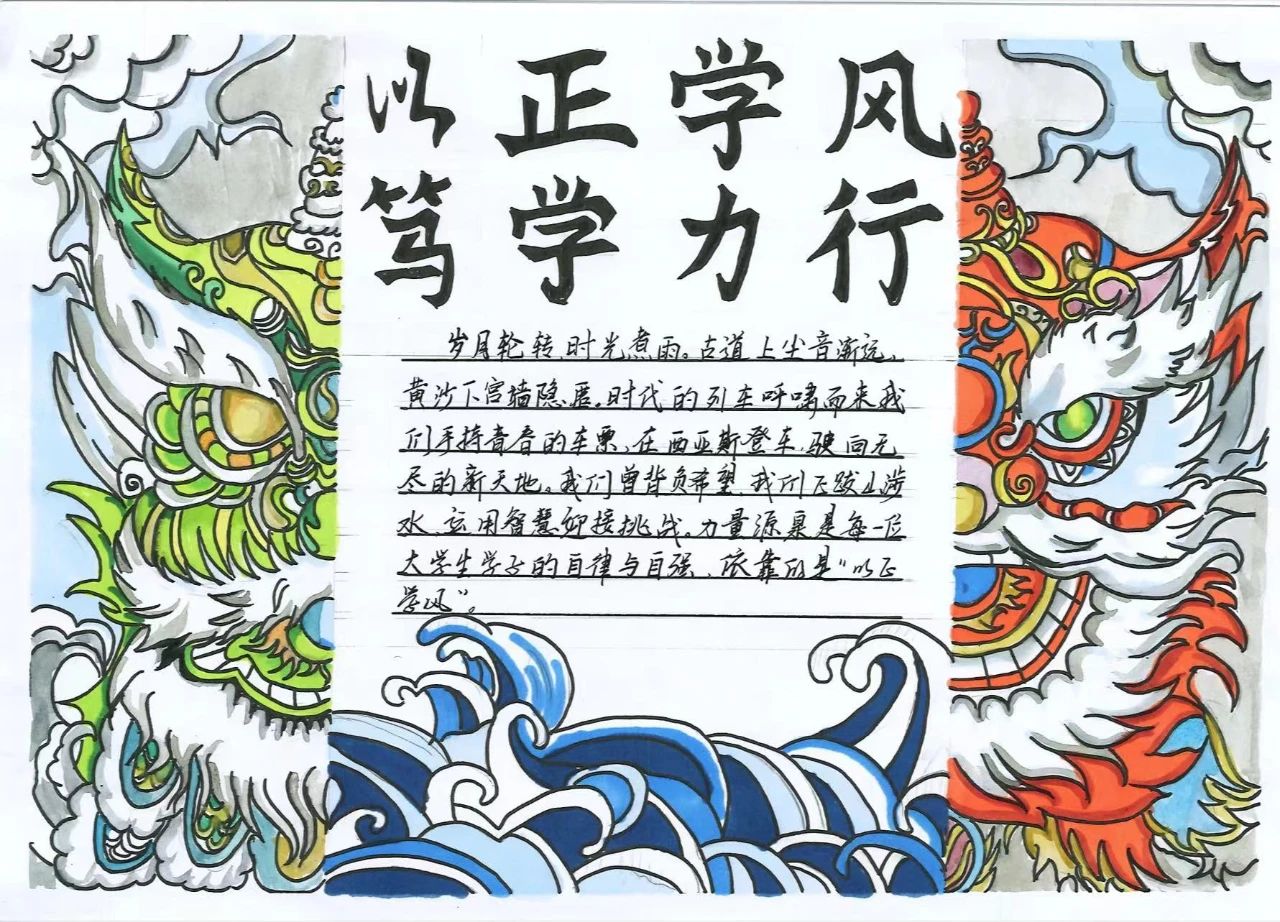 以正学风
笃学力行
岁月轮转时光煮雨。古道上尘音渐远、
黄沙下宫墙隐匿。时代的列车呼啸而来我
们手持青春的车票、在西亚斯登车、驶向无
尽的新天地。我们曾背负希望、我们正跋山涉
水、运用智慧迎接挑战。力量源泉是每一位
大学生学子的自律与自强、依靠的是“以正
学风”。